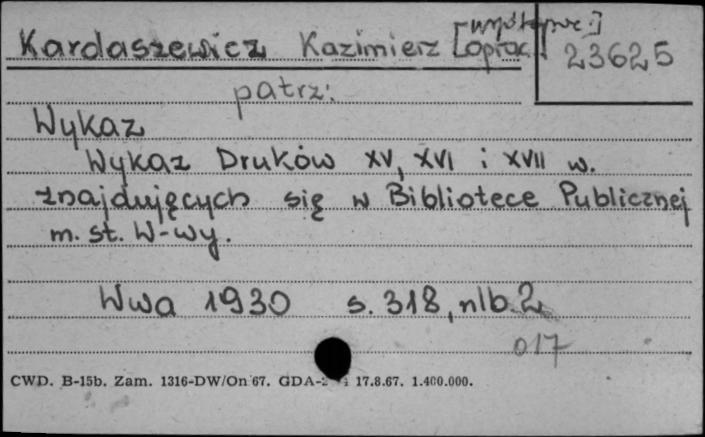 [współoprac.]
Kardaszewicz Kazimierz [oprac.]
23625
patrz:
Wykaz
Wykaz Druków XV, XVI i XVII w.
znajdujęcych się w Bibliotece Publicznej
m. st. W-wy.
Wwa 1930 s. 318, nlb. 2
017
CWD. B-15b. Zam. 1316-DW/On 67. GDA- 17.8.67. 1.400.000.